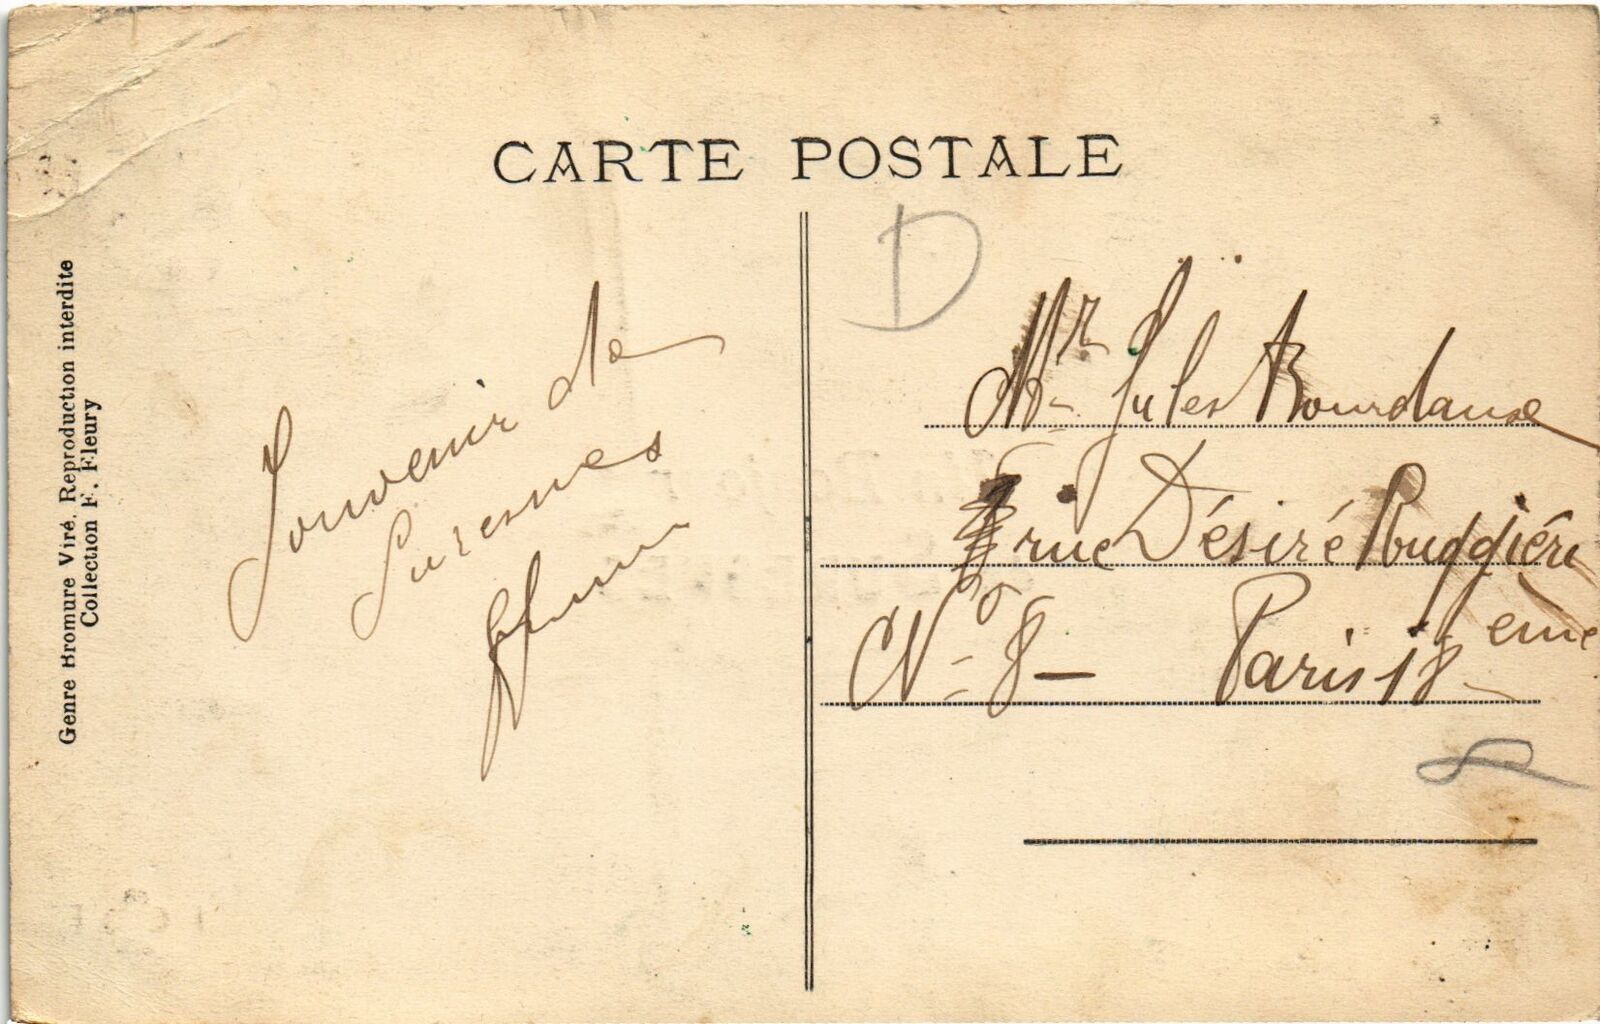 CARTE POSTALE
Genre Bromure Viré. Reproduction interdite
Collection F. Fleury
Souvenir de
Suresnes
D
Mr Jules Bourdause
rue Désiré Ruggiéri
No 8 — Paris 18eme